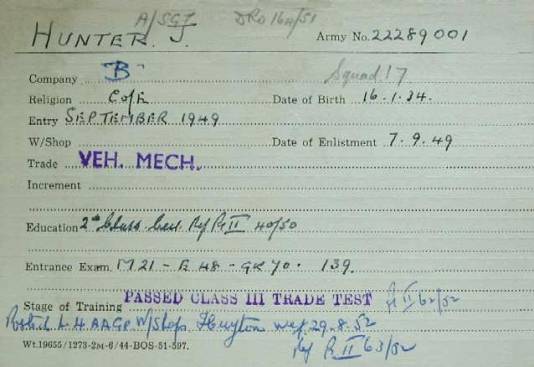 A/SGT DRO 164/51
HUNTER. J. Army No. 22289001
Company "B" Squad 17
Religion C of E Date of Birth 16.1.34.
Entry SEPTEMBER 1949
W/Shop Date of Enlistment 7.9.49
Trade VEH. MECH.
Increment
Education 2nd Class Cert. Ref Pt II 40/50
Entrance Exam. M21 - E48 - GK70 - 139.
Stage of Training PASSED CLASS III TRADE TEST II 62/52
Posted L.H.AAGP W/Shops. Huyton wef 29.8.52
Ref Pt II 63/52
Wt.19655/1273-2M-6/44-BOS-51-597.